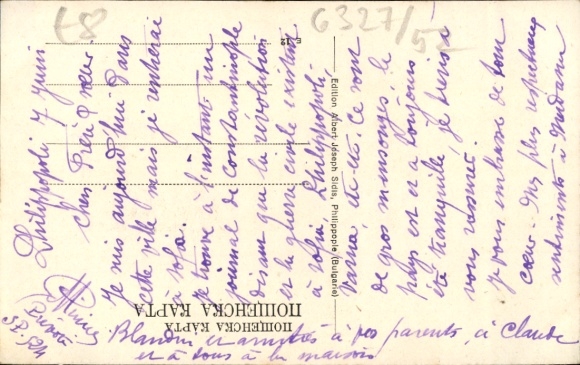 68
6327/52
Philippopoli 7 Juin
Cher Pierre
Je suis aujourd'hui dans
cette ville mais je rentrerai
à Sofia.
Je trouve à l'instant un
journal de Constantinople
disant que la révolution
et la guerre civile existent
à Sofia, Philippopoli
Varna, etc-etc. Ce sont
de gros mensonges, le
pays est et a toujours
été tranquille, je tiens à
vous rassurer.
je vous embrasse de tout
cœur. Mes plus respectueux
sentiments à Madame
Blandin et amitiés à tes parents, à Claude
et à tous à la maison
E 12
Edition Albert Joseph Sidis, Philippople (Bulgarie)
ПОЩЕНСКА КАРТА
ПОЩЕНСКА КАРТА